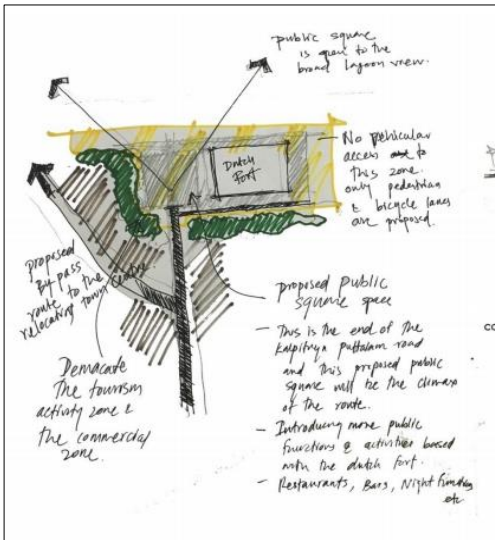 public square
is open to the
broad lagoon view.
Dutch
Fort
No vehicular
access to
this zone.
only pedestrian
& bicycle lanes
are proposed.
proposed
By pass
route to the
relocating town centre
proposed public
square space
- This is the end of the
Kalpitiya puttalam road
and this proposed public
square will be the climax
of the route.
- Introducing more public
functions & activities based
with the dutch fort.
- Restaurants, Bars, Night functions
etc
Demacate
The tourism
activity zone &
the commercial
zone.
co